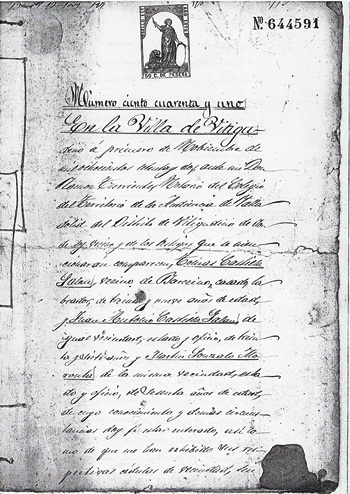 Nº 644591
Número ciento cuarenta y uno
En la Villa de Vitigu-
dino a primero de Noviembre de
mil ochocientos ochenta y dos, ante mi Don
Ramon Notario del Colegio
del Territorio de la Audiencia de Valla
dolid del Distrito de Vitigudino
y de los testigos que se
comparecen, Tomas Castilla
vecino de Barceino, casado, la
brador, de treinta y nueve años de edad,
y Juan Antonio Castilla de
igual vecindad, estado y oficio, de trein
ta y años y Martin Gonzalo
de la misma vecindad, esta
do y oficio, de sesenta años de edad,
de cuyo conocimiento y demás circuns
tancias doy fé estar enterado, así co
mo de que me han exhibido sus res
pectivas cédulas de vecindad,